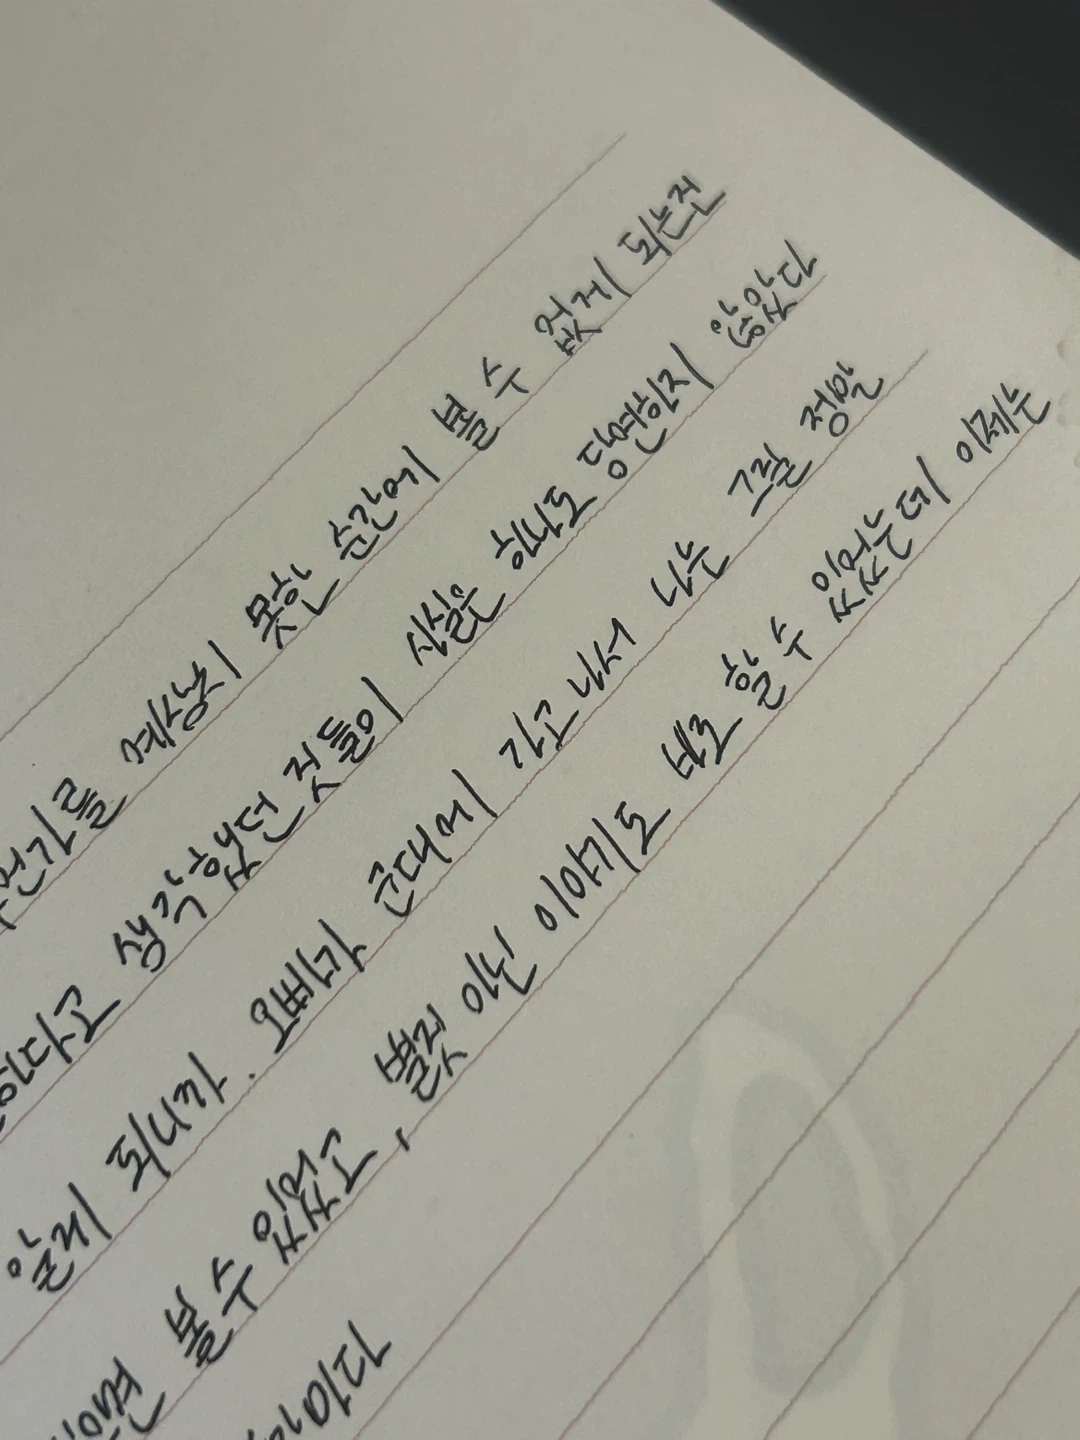 언가를 예상치 못한 순간에 볼 수 없게 되는건
하다고 생각했던 것들이 사실은 하나도 당연하지 않았다
알게 되니까. 오빠가 군대에 가고 나서 나는 그걸 정말
면 볼 수 있었고, 별것 아닌 이야기도 바로 할 수 있었는데 이제는
이다